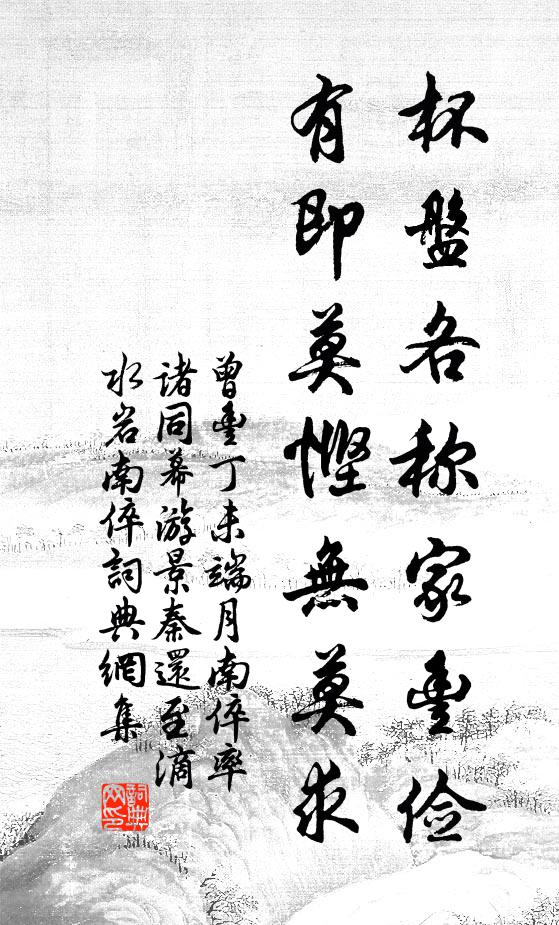 杯盤各称家豊俭
有即莫慳無莫求
曾豊丁未端月南倅率
諸同幕游景泰還至滴
水岩南倅詞典網集
詞典网印